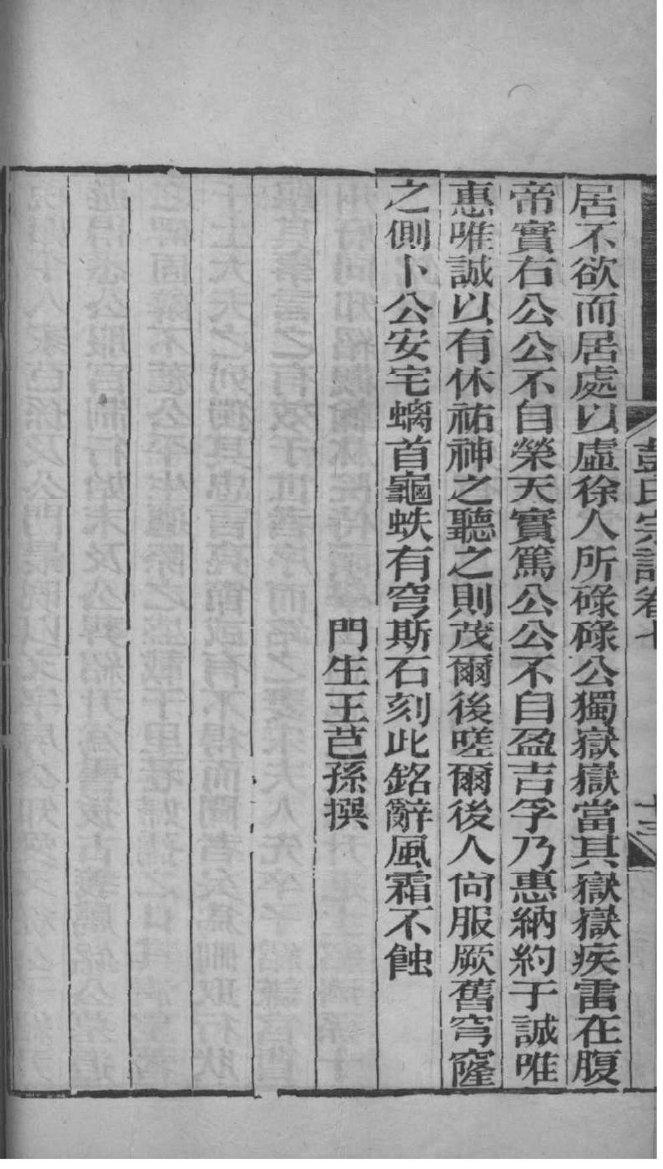 彭氏宗譜卷七
十三
居不欲而居處以虛徐人所碌碌公獨嶽嶽當其嶽嶽疾雷在腹
帝實右公公不自榮天實篤公公不自盈吉孚乃惠納約于誠唯
惠唯誠以有休祐神之聽之則茂爾後嗟爾後人尙服厥舊穹窿
之側卜公安宅螭首龜蚨有穹斯石刻此銘辭風霜不蝕
門生王芑孫撰